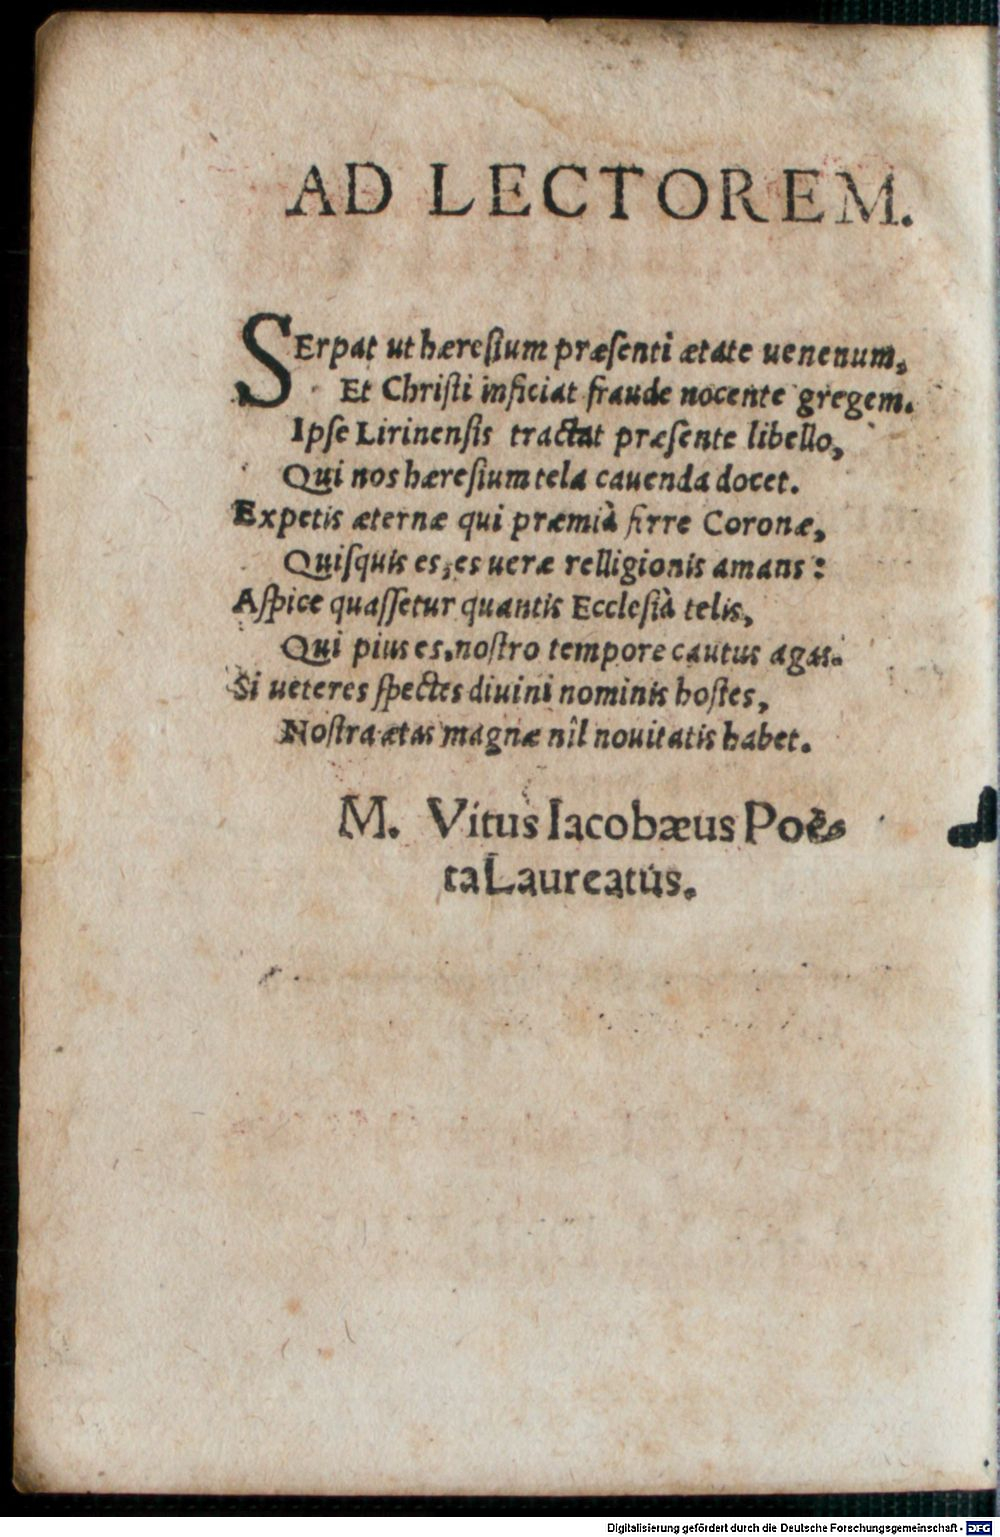 AD LECTOREM.
SErpat ut hæresium præsenti ætate uenenum,
Et Christi inficiat fraude nocente gregem.
Ipse Lirinensis tractat præsente libello,
Qui nos hæresium tela cauenda docet.
Expetis æternæ qui præmià firre Coronæ,
Quisquis es, es ueræ relligionis amans:
Aspice quassetur quantis Ecclesià telis,
Qui pius es, nostro tempore cautus agas.
Si ueteres spectes diuini nominis hostes,
Nostra ætas magnæ nîl nouitatis habet.
M. Vitus Iacobæus Poë-
ta Laureatus.
Digitalisierung gefördert durch die Deutsche Forschungsgemeinschaft - DFG